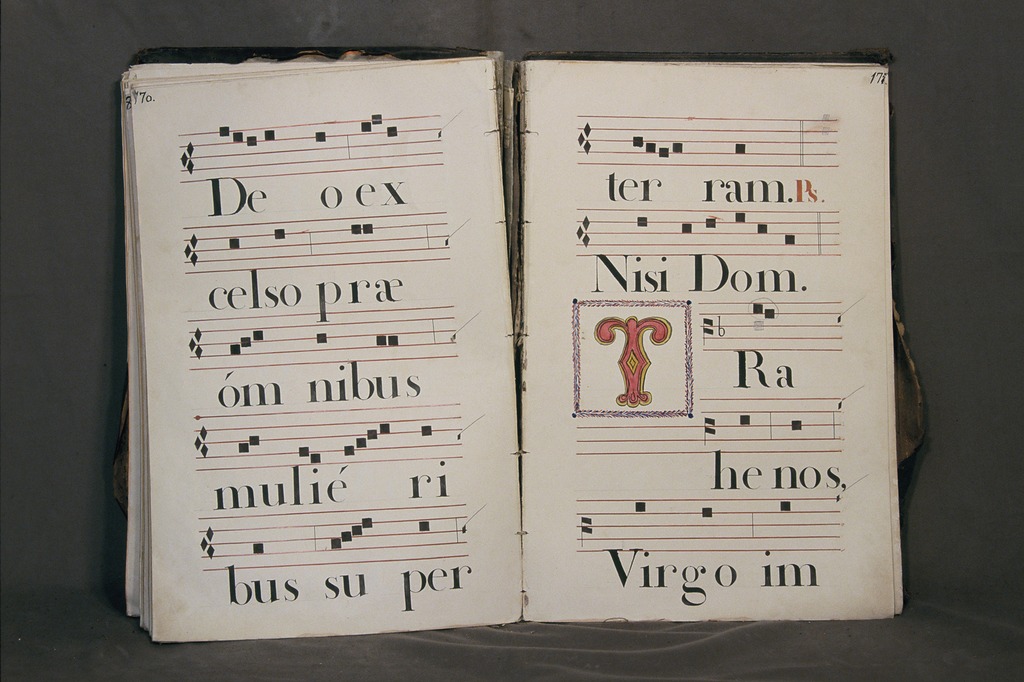 170.
De o ex
celso præ
óm nibus
mulié ri
bus su per
171
ter ram. Ps.
Nisi Dom.
T Ra
he nos,
Virgo im